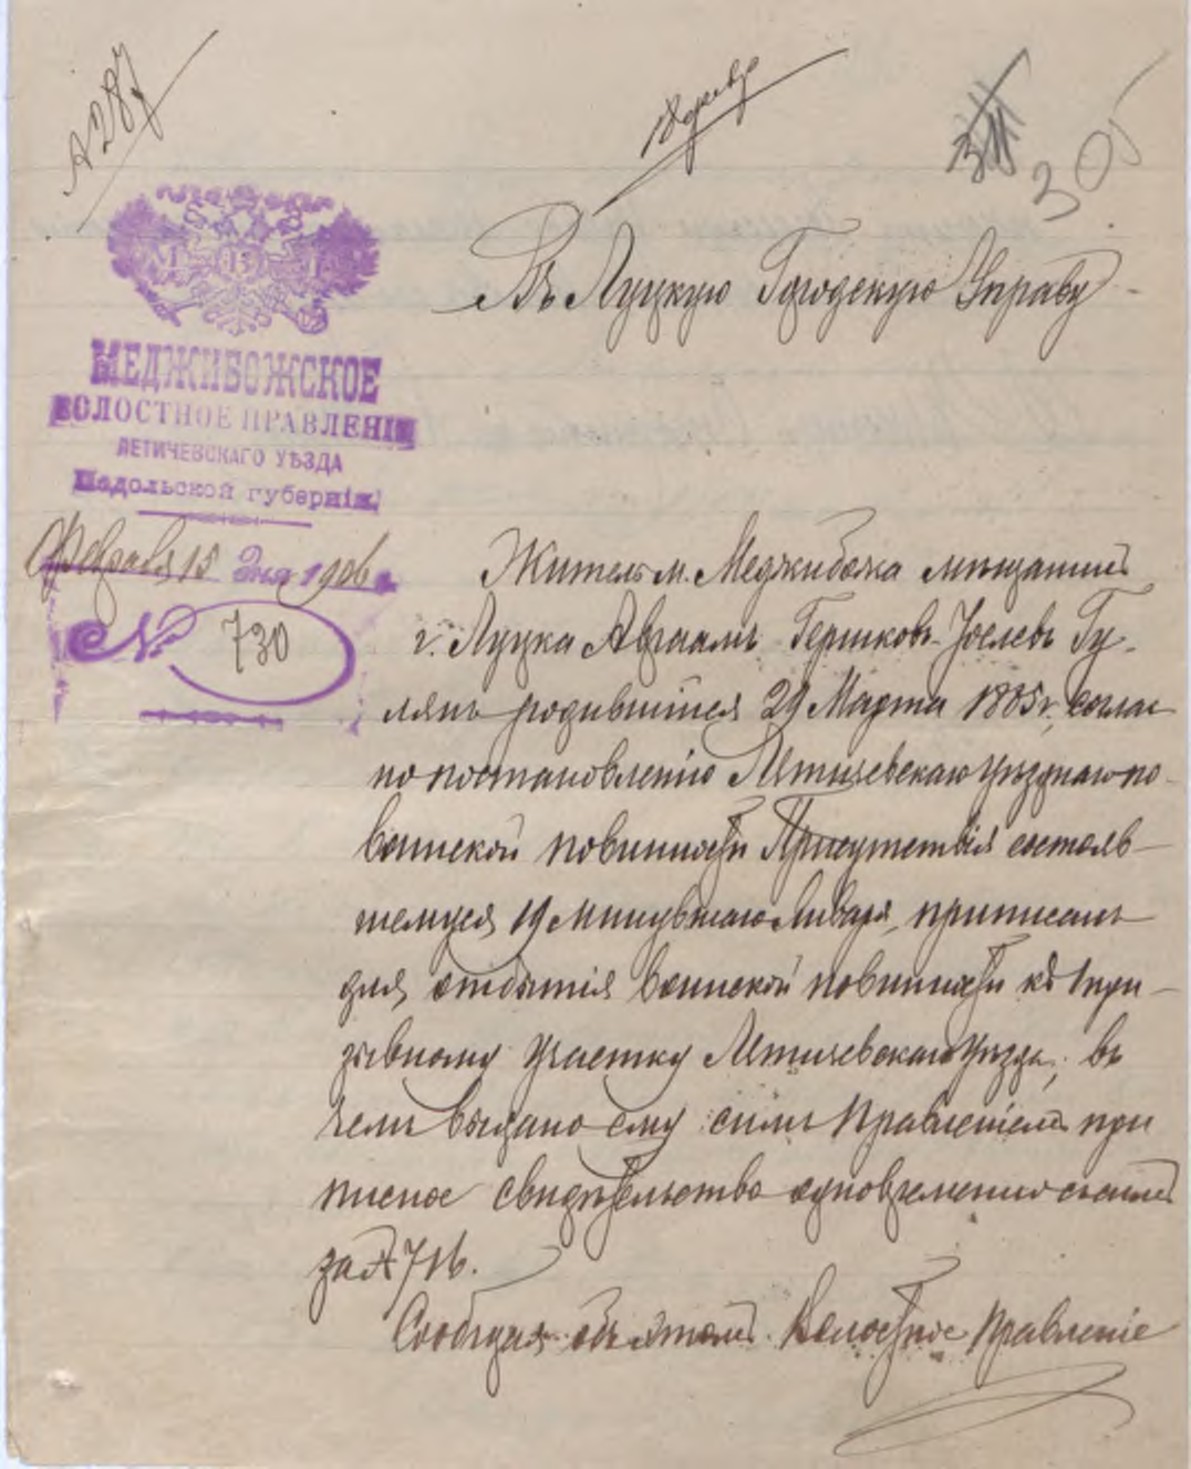 А 287
305
Въ Луцкую Городскую Управу
МЕДЖИБОЖСКОЕ
ВОЛОСТНОЕ ПРАВЛЕНІЕ
ЛЕТИЧЕВСКАГО УѢЗДА
Подольской губерніи.
Февраля 15 дня 1906 г.
№ 730
Житель м. Меджибожа мѣщанинъ
г. Луцка Авраамъ Гершковъ-Іоелевъ Гу-
лянъ родившійся 29 Марта 1885 г. соглас
но постановленію Летичевскаго уѣзднаго по
воинской повинности Присутствія состояв-
шемуся 19 минувшаго Января, приписанъ
для отбытія воинской повинности къ 1 при-
зывному участку Летичевскаго уѣзда, въ
чемъ выдано ему симъ Правленіемъ при
писное свидѣтельство одновременно съ симъ
за №
Сообщая объ этомъ Волостное Правленіе